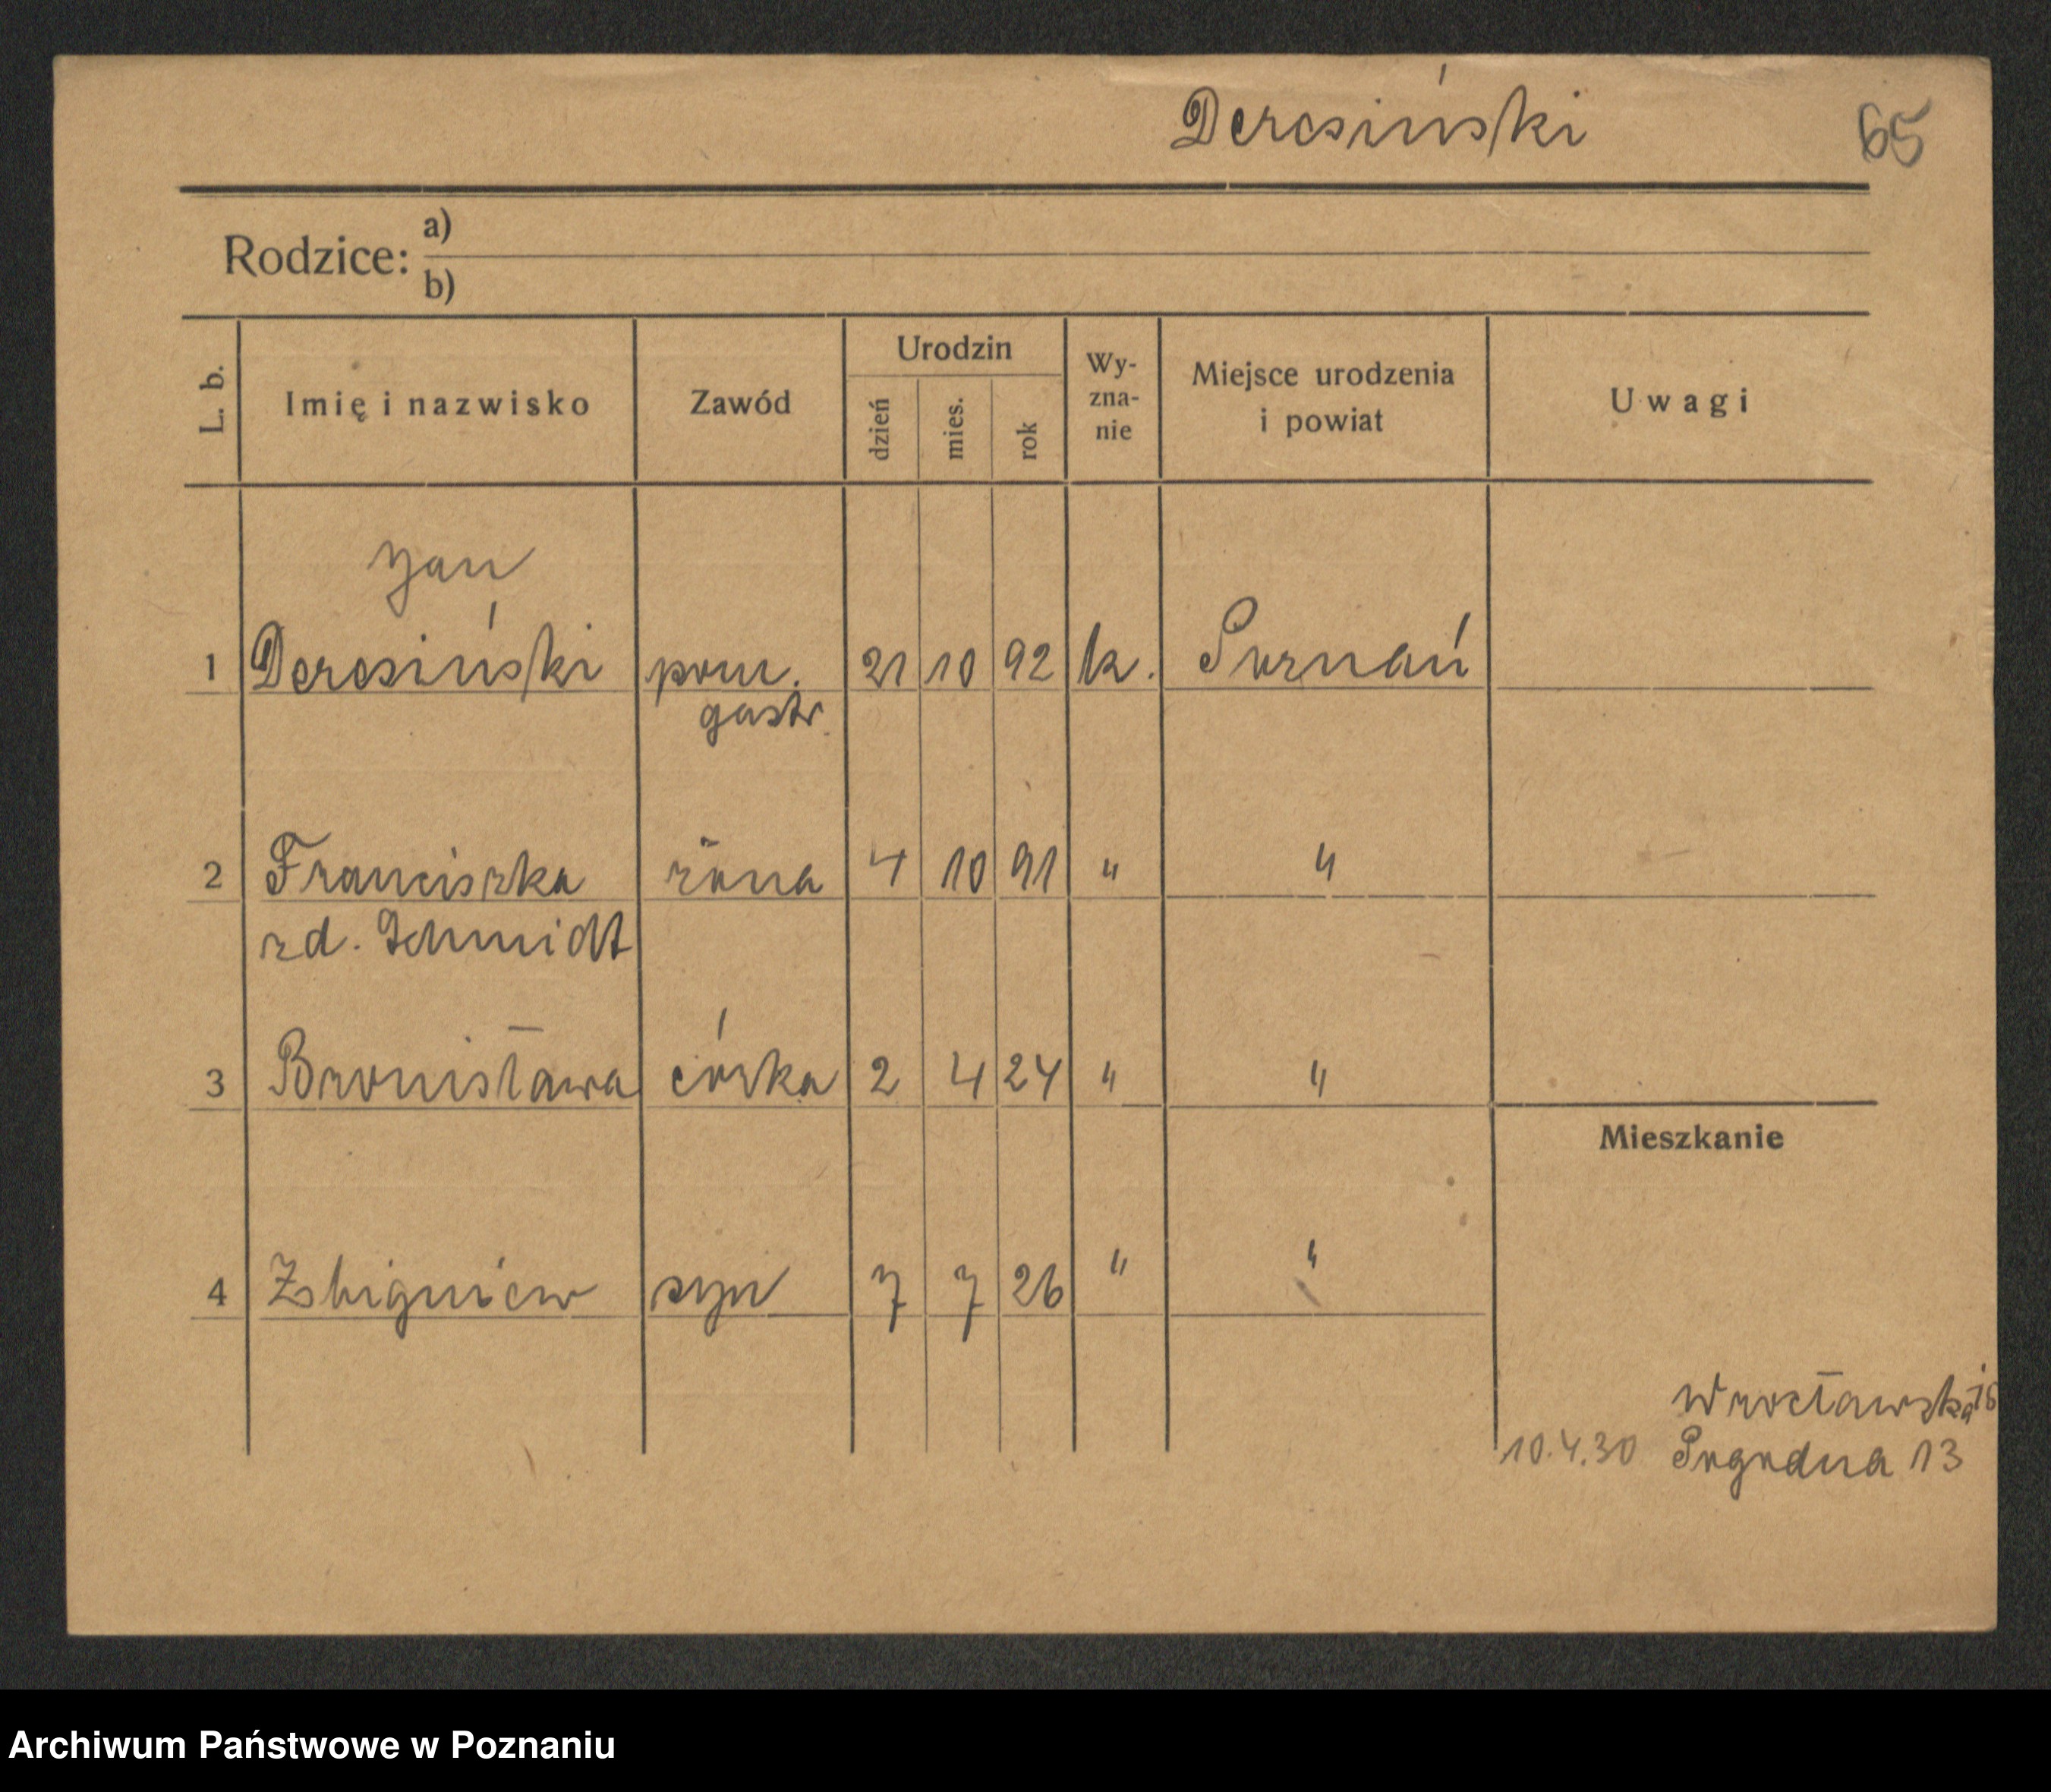 Deresiński 65
Rodzice: a)
b)
L. b. Imię i nazwisko Zawód Urodzin dzień mies. rok Wy-zna-nie Miejsce urodzenia i powiat Uwagi
Jan
1 Deresiński pom. 21 10 92 k. Poznań
gastr.
2 Franciszka żona 4 10 91 " "
zd. Schmidt
3 Bronisława córka 2 4 24 " "
Mieszkanie
4 Zbigniew syn 7 7 26 " "
Wrocławska
10.4.30 Pogodna 13
Archiwum Państwowe w Poznaniu